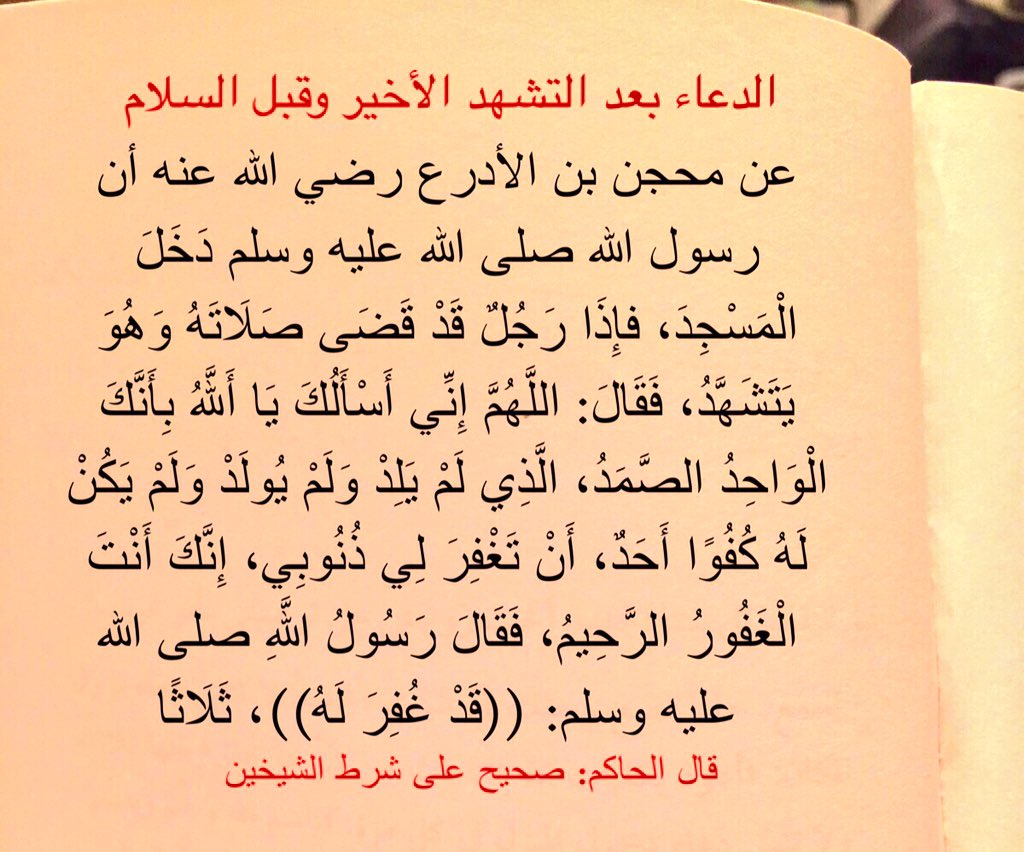 الدعاء بعد التشهد الأخير وقبل السلام
عن محجن بن الأدرع رضي الله عنه أن
رسول الله صلى الله عليه وسلم دَخَلَ
الْمَسْجِدَ، فإِذَا رَجُلٌ قَدْ قَضَى صَلَاتَهُ وَهُوَ
يَتَشَهَّدُ، فَقَالَ: اللَّهُمَّ إِنِّي أَسْأَلُكَ يَا أَللَّهُ بِأَنَّكَ
الْوَاحِدُ الصَّمَدُ، الَّذِي لَمْ يَلِدْ وَلَمْ يُولَدْ وَلَمْ يَكُنْ
لَهُ كُفُوًا أَحَدٌ، أَنْ تَغْفِرَ لِي ذُنُوبِي، إِنَّكَ أَنْتَ
الْغَفُورُ الرَّحِيمُ، فَقَالَ رَسُولُ اللَّهِ صلى الله
عليه وسلم: ((قَدْ غُفِرَ لَهُ))، ثَلَاثًا
قال الحاكم: صحيح على شرط الشيخين